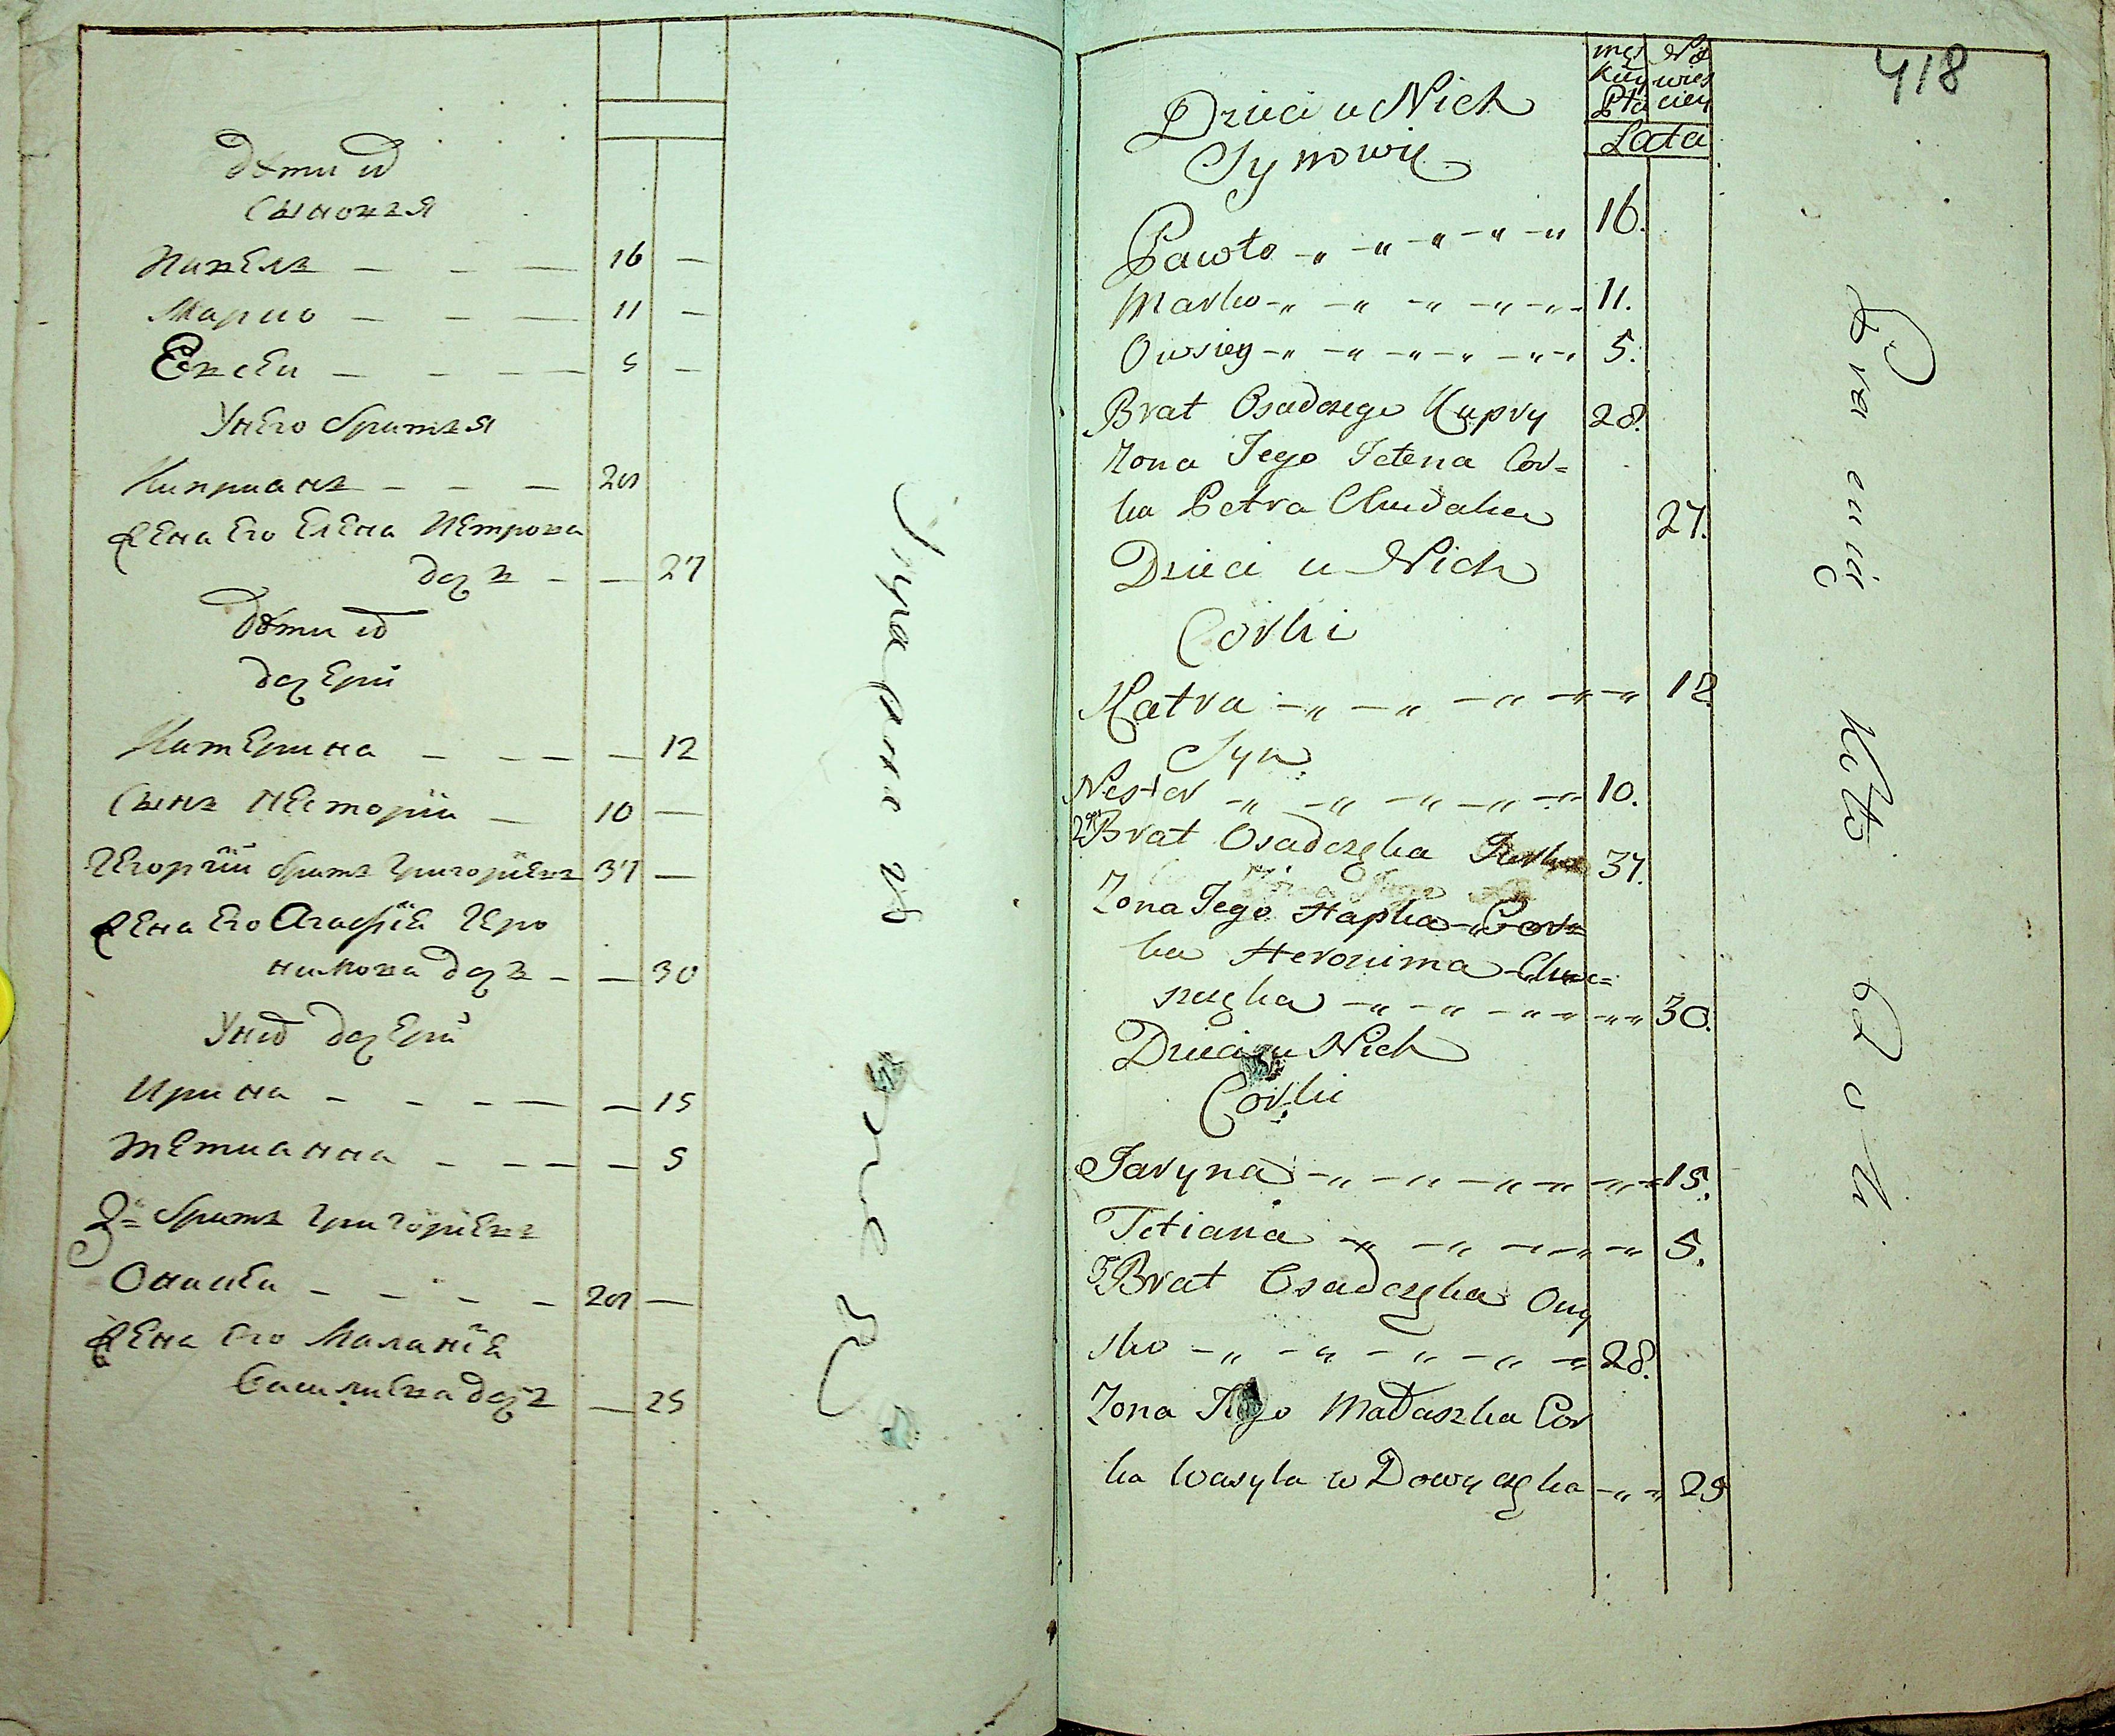 дѣти их
сыновья
Павелъ — — — 16 —
Марко — — — 11 —
Евсеи — — — — 5 —
У него братья
Киприанъ — — — 28
жена его Елена Петрова
дочь — — 27
дѣти их
дочери
Катерина — — — — 12
сынъ Несторiи — 10 —
Георгiи братъ Григорiевъ 37 —
жена его Агафiя Iеро
нимова дочь — — 30
У них дочери
Ирина — — — — — 15
Тетианна — — — — 5
3й братъ Григорiевъ
Ониско — — — — 28 —
жена его Маланiя
Василиева дочь — 25
418
męs No
kiey wies
Płci ciey
Lata
Dzieci u Nich
Synowie
Pawło 16.
Marko 11.
Owsiey 5.
Brat Osadczego Kupry 28.
Zona Jego Jelena Cor=
ka Petra Chudaka 27.
Dzieci u Nich
Corki
Katra 12
Syn
Nestor 10.
2gi Brat Osadczyka Jurko 37.
Zona Jego Hapka Cor=
ka Heronima
30.
Dzieci u Nich
Corki
Jaryna 15.
Tetiana 5.
3 Brat Osadczyka Ony
sko 28.
Zona Jego Małaszka Cor
ka Wasyla wDowyczyka 25